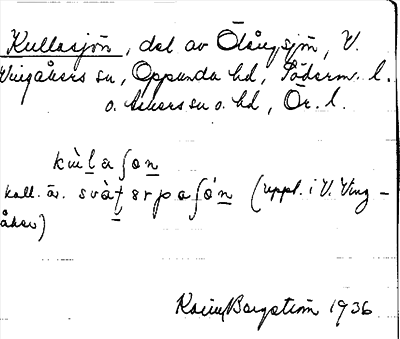 Kullasjön, del av Ölångsjön, V.
Vingåkers sn, Oppunda hd, Söderm. l.
o. Askers sn o. hd, Ör. l.
kùlaʃon
kall. är. svàtərpaʃón (uppl. i V. Ving-
åker)
Karin Bergström 1936